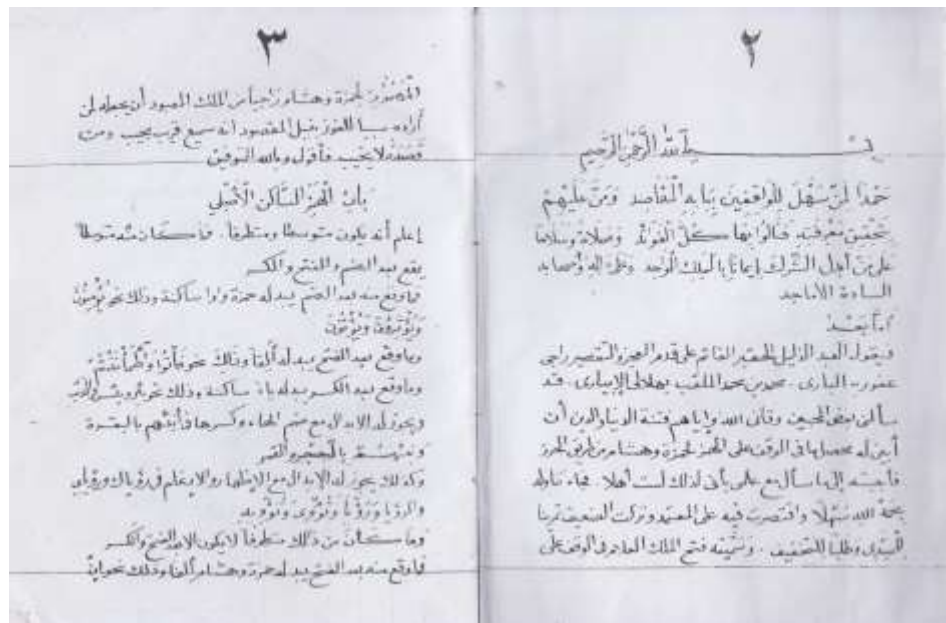 ٢
بسم الله الرحمن الرحيم
حمدا لمن سهل للواقفين ببابه المقاصد ومن عليهم
بتحقيق معرفته فنالوا بها كل الفوائد وصلاة وسلاما
على من أجل الشرك إيمانا بالمليك الواحد وعلى اله وأصحابه
السادة الأماجد
أما بعد
فيقول العبد الذليل الحقير القائم على قدم العجز والتقصير راجى
عفو ربه البارى . محمد بن محمد الملقب بهلالى الإبيارى . قد
سألنى بعض المحبين وقانى الله واياهم فتنة الدنيا والدين أن
أبين له محصلها فى الوقف على الهمز لحمزة وهشام من طريق الحرز
فأجبته إلى ما سأل مع علمى بأنى لذلك لست أهلا . فجاء تأليفه
بحمد الله سهلا واقتصرت فيه على المعتمد وتركت الضعيف تمرينا
للمبتدى وطلبا للتخفيف . وسميته فتح الملك المعبود فى الوقف على
٣
المهموز لحمزة وهشام راجيا من الملك المعبود أن يجعله لمن
أراده سببا للفوز بنيل المقصود انه سميع قريب مجيب ومن
قصده لا يخيب فأقول وبالله التوفيق
باب الهمز الساكن الأصلى
إعلم أنه يكون متوسطا ومتطرفا . فما كان منه متوسطا
يقع بعد الضم والفتح والكسر
فما وقع منه بعد الضم يبدله حمزة واوا ساكنة وذلك نحو يؤمنون
ويؤثرون ويؤتون
وما وقع بعد الفتح يبدله ألفا وذلك نحو فأتوا
وما وقع بعد الكسر يبدله ياء ساكنة وذلك نحو بئر وبئس والذئب
ويجوز له الابدال مع ضم الهاء وكسرها فى أنبئهم بالبقرة
ونبئهم بالحجر والقمر
وكذلك يجوز له الإبدال مع الإظهار والإدغام فى رؤياك ورؤياى
والرؤيا ورؤيا وتؤوى وتؤويه
وما كان من ذلك متطرفا لا يكون إلا بعد الفتح والكسر
فما وقع منه بعد الفتح يبدله حمزة وهشام ألفا وذلك نحو